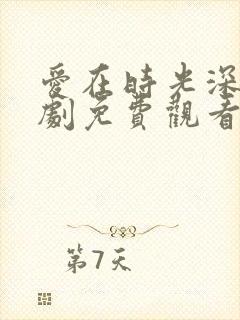 愛在時光深
劇免費觀看
第7天